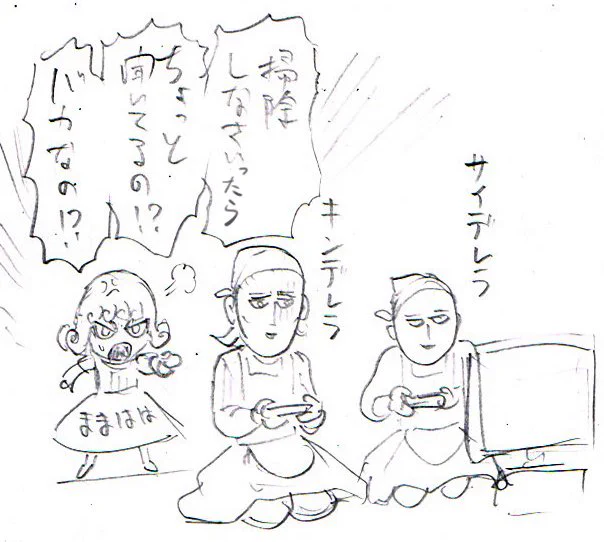 掃除
しなさいったら
ちょっと
聞いてるの!?
バカなの!?
サイデレラ
キンデレラ
ままはは